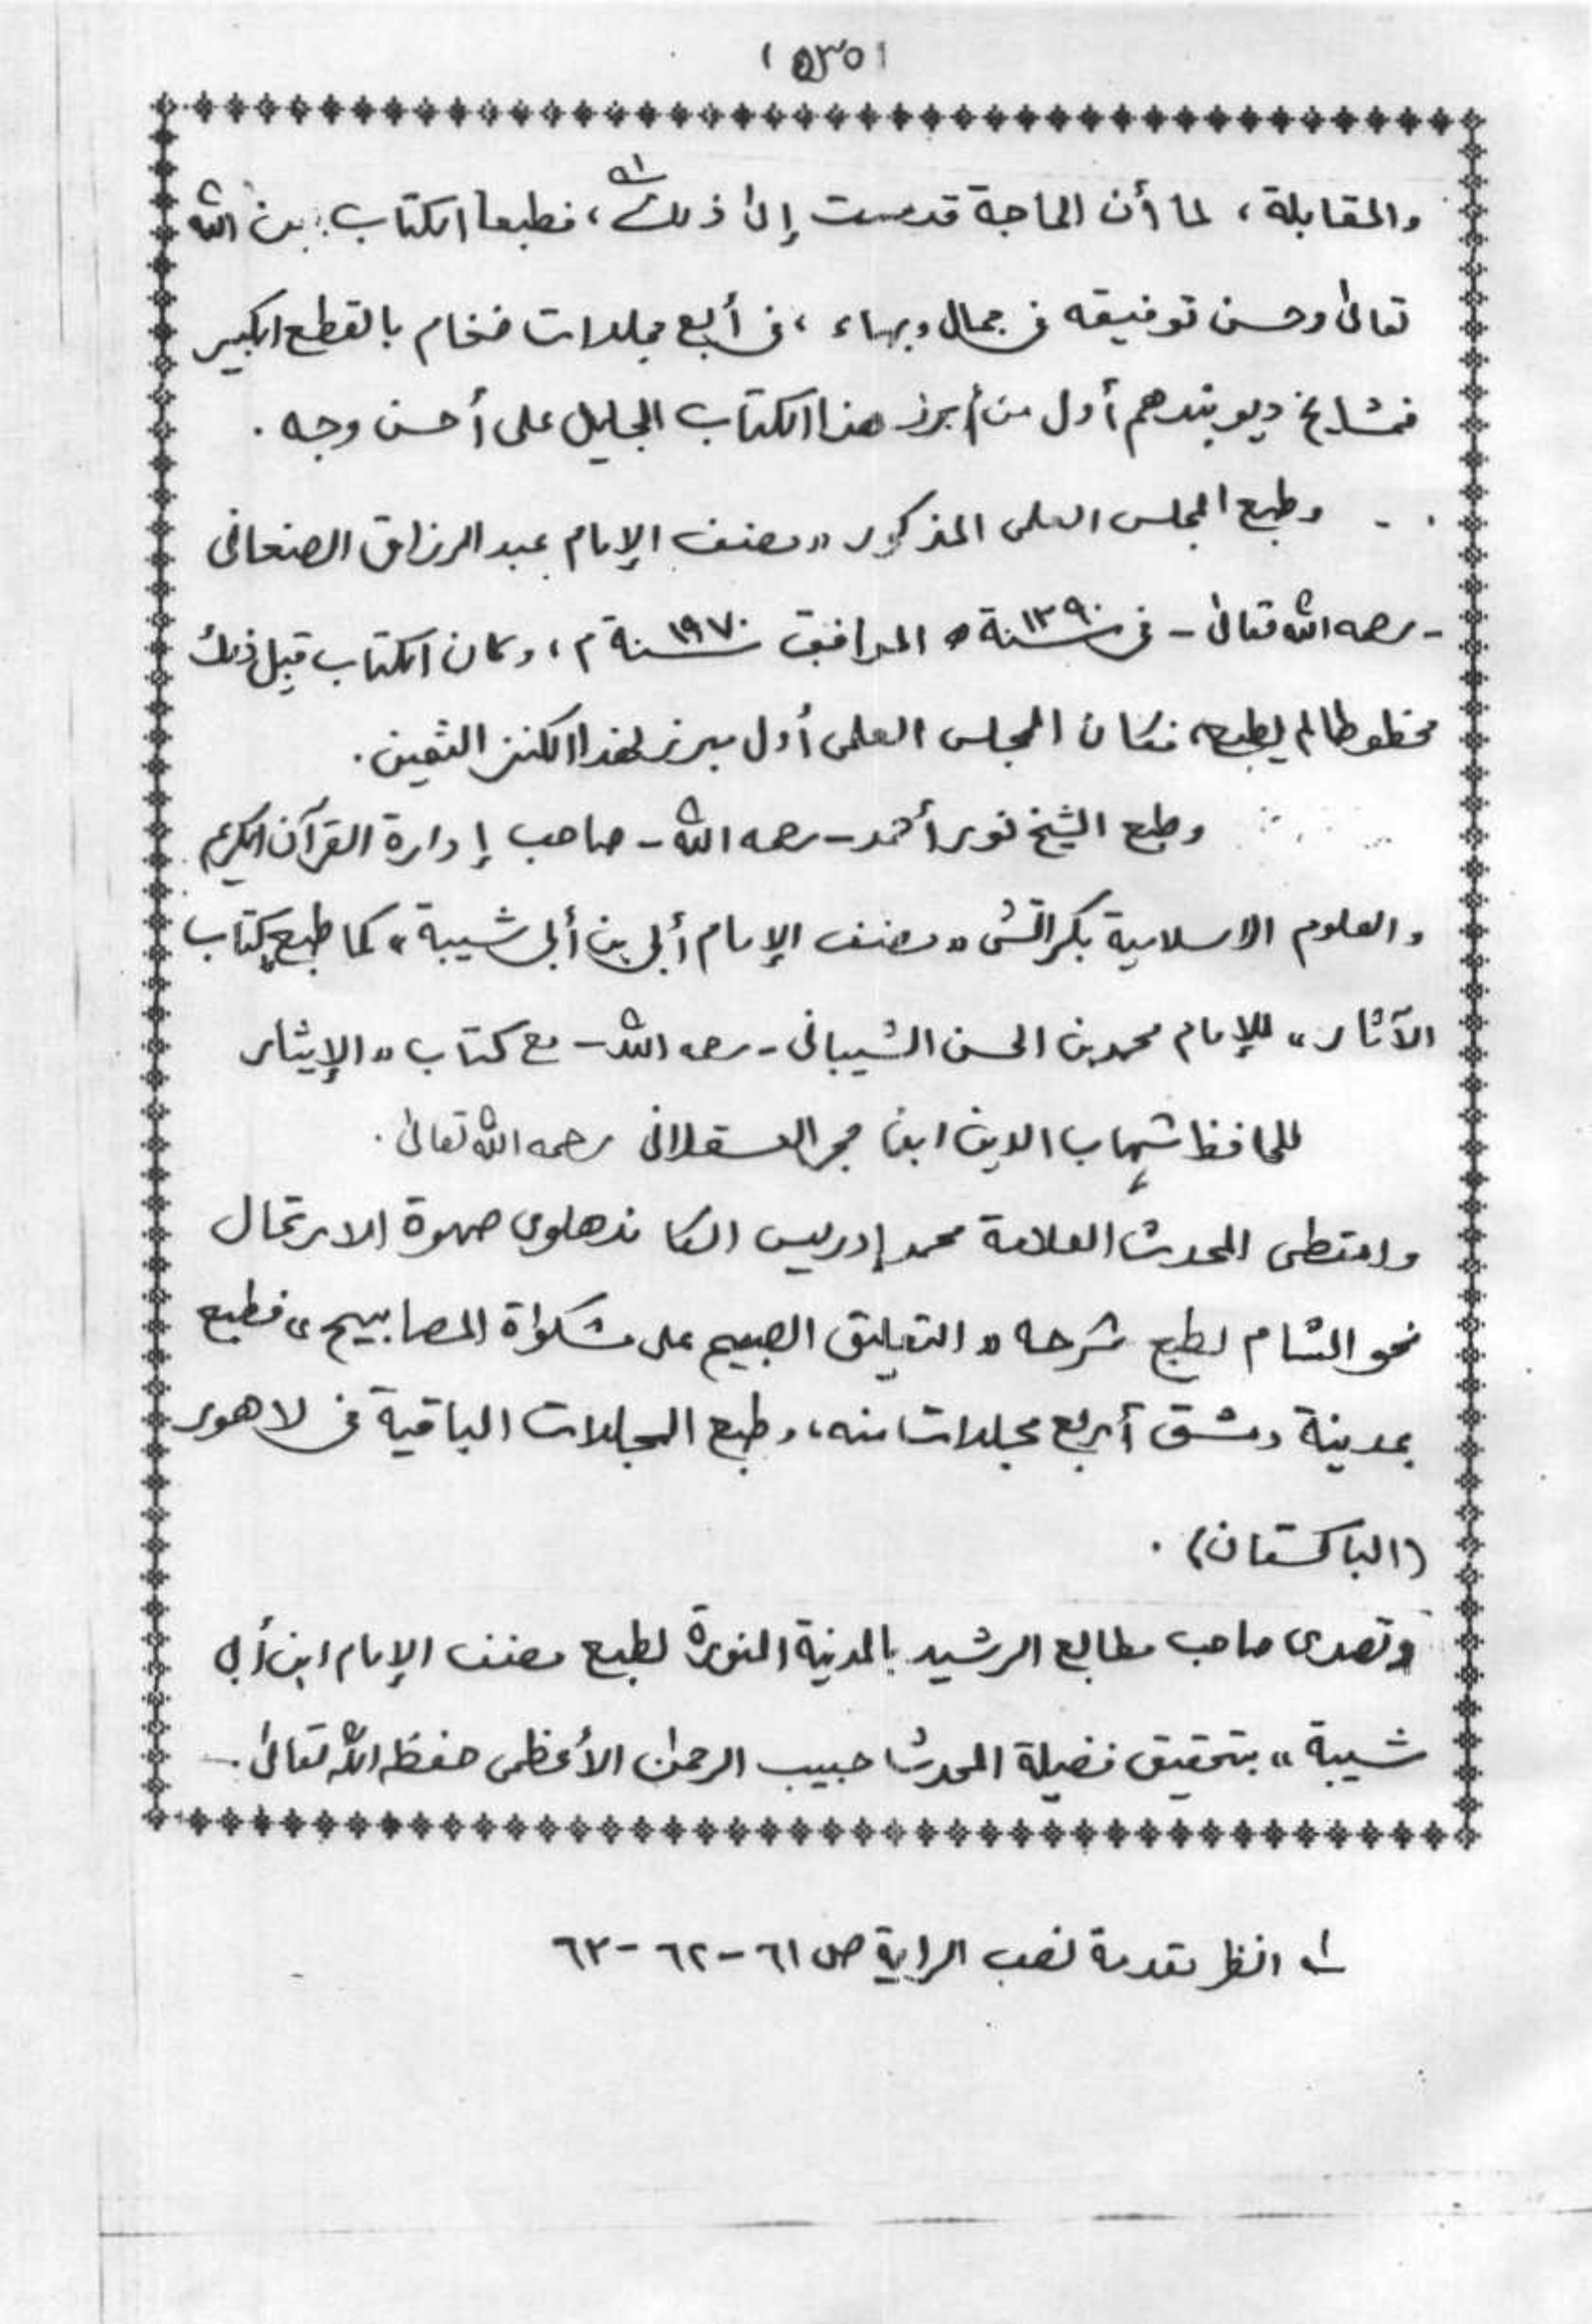 (٥٣٥)
والمقابلة، لما أن الحاجة قد مست إلى ذلك ⁽١⁾، فطبعا الكتاب بمن الله
تعالى وحسن توفيقه في جمال وبهاء، في أربع مجلدات ضخام بالقطع الكبير
فمشايخ ديوبند هم أول من أبرز هذا الكتاب الجليل على أحسن وجه.
وطبع المجلس العلمى المذكور «مصنف الإمام عبد الرزاق الصنعانى
- رحمه الله تعالى - فى سنة ١٣٩٠ ه الموافق سنة ١٩٧٠ م، وكان الكتاب قبل ذلك
مخطوطا لم يطبع، فكان المجلس العلمى أول مبرز لهذا الكنز الثمين.
وطبع الشيخ نور أحمد - رحمه الله - صاحب إدارة القرآن الكريم
والعلوم الاسلامية بكراتشى «مصنف الإمام أبى بن أبى شيبة» كما طبع كتاب
الآثار» للإمام محمد بن الحسن الشيبانى - رحمه الله - مع كتاب «الإيثار
للحافظ شهاب الدين ابن حجر العسقلانى رحمه الله تعالى.
وامتطى المحدث العلامة محمد إدريس الكاندهلوى صهوة الارتحال
نحو الشام لطبع شرحه «التعليق الصبيح على مشكواة المصابيح» فطبع
بمدينة دمشق أربع مجلدات منه، وطبع المجلدات الباقية فى لاهور
(الباكستان).
وتصدى صاحب مطابع الرشيد بالمدينة المنورة لطبع مصنف الإمام ابن أبى
شيبة» بتحقيق فضيلة المحدث حبيب الرحمن الأعظمى حفظه الله تعالى.
١ انظر مقدمة نصب الراية ص ٦١-٦٢-٦٣